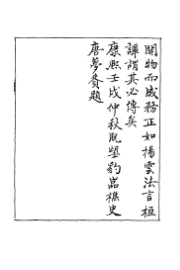 開物而成務正如揚雲法言桓
譚謂其必傳矣
康熙壬戌仲秋既望豹嵓樵史
唐夢賚題